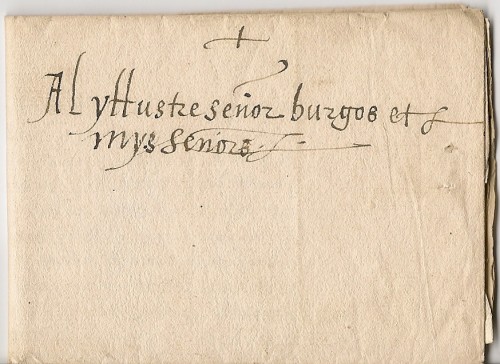 Al yllustre señor burgos et
mys señors